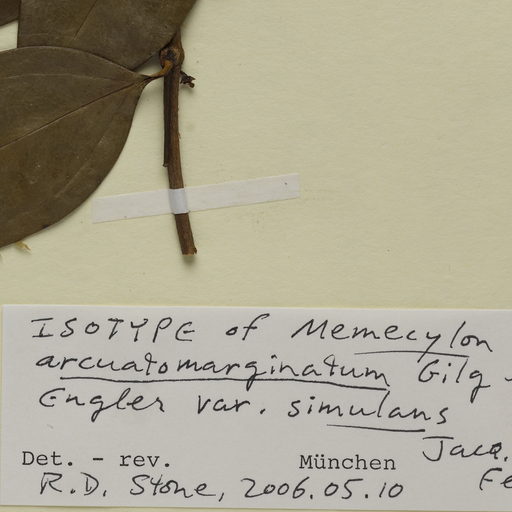 ISOTYPE of Memecylon
arcuatomarginatum Gilg
Engler var. simulans
Jacq.
Det. - rev. München Fe
R.D. Stone, 2006.05.10